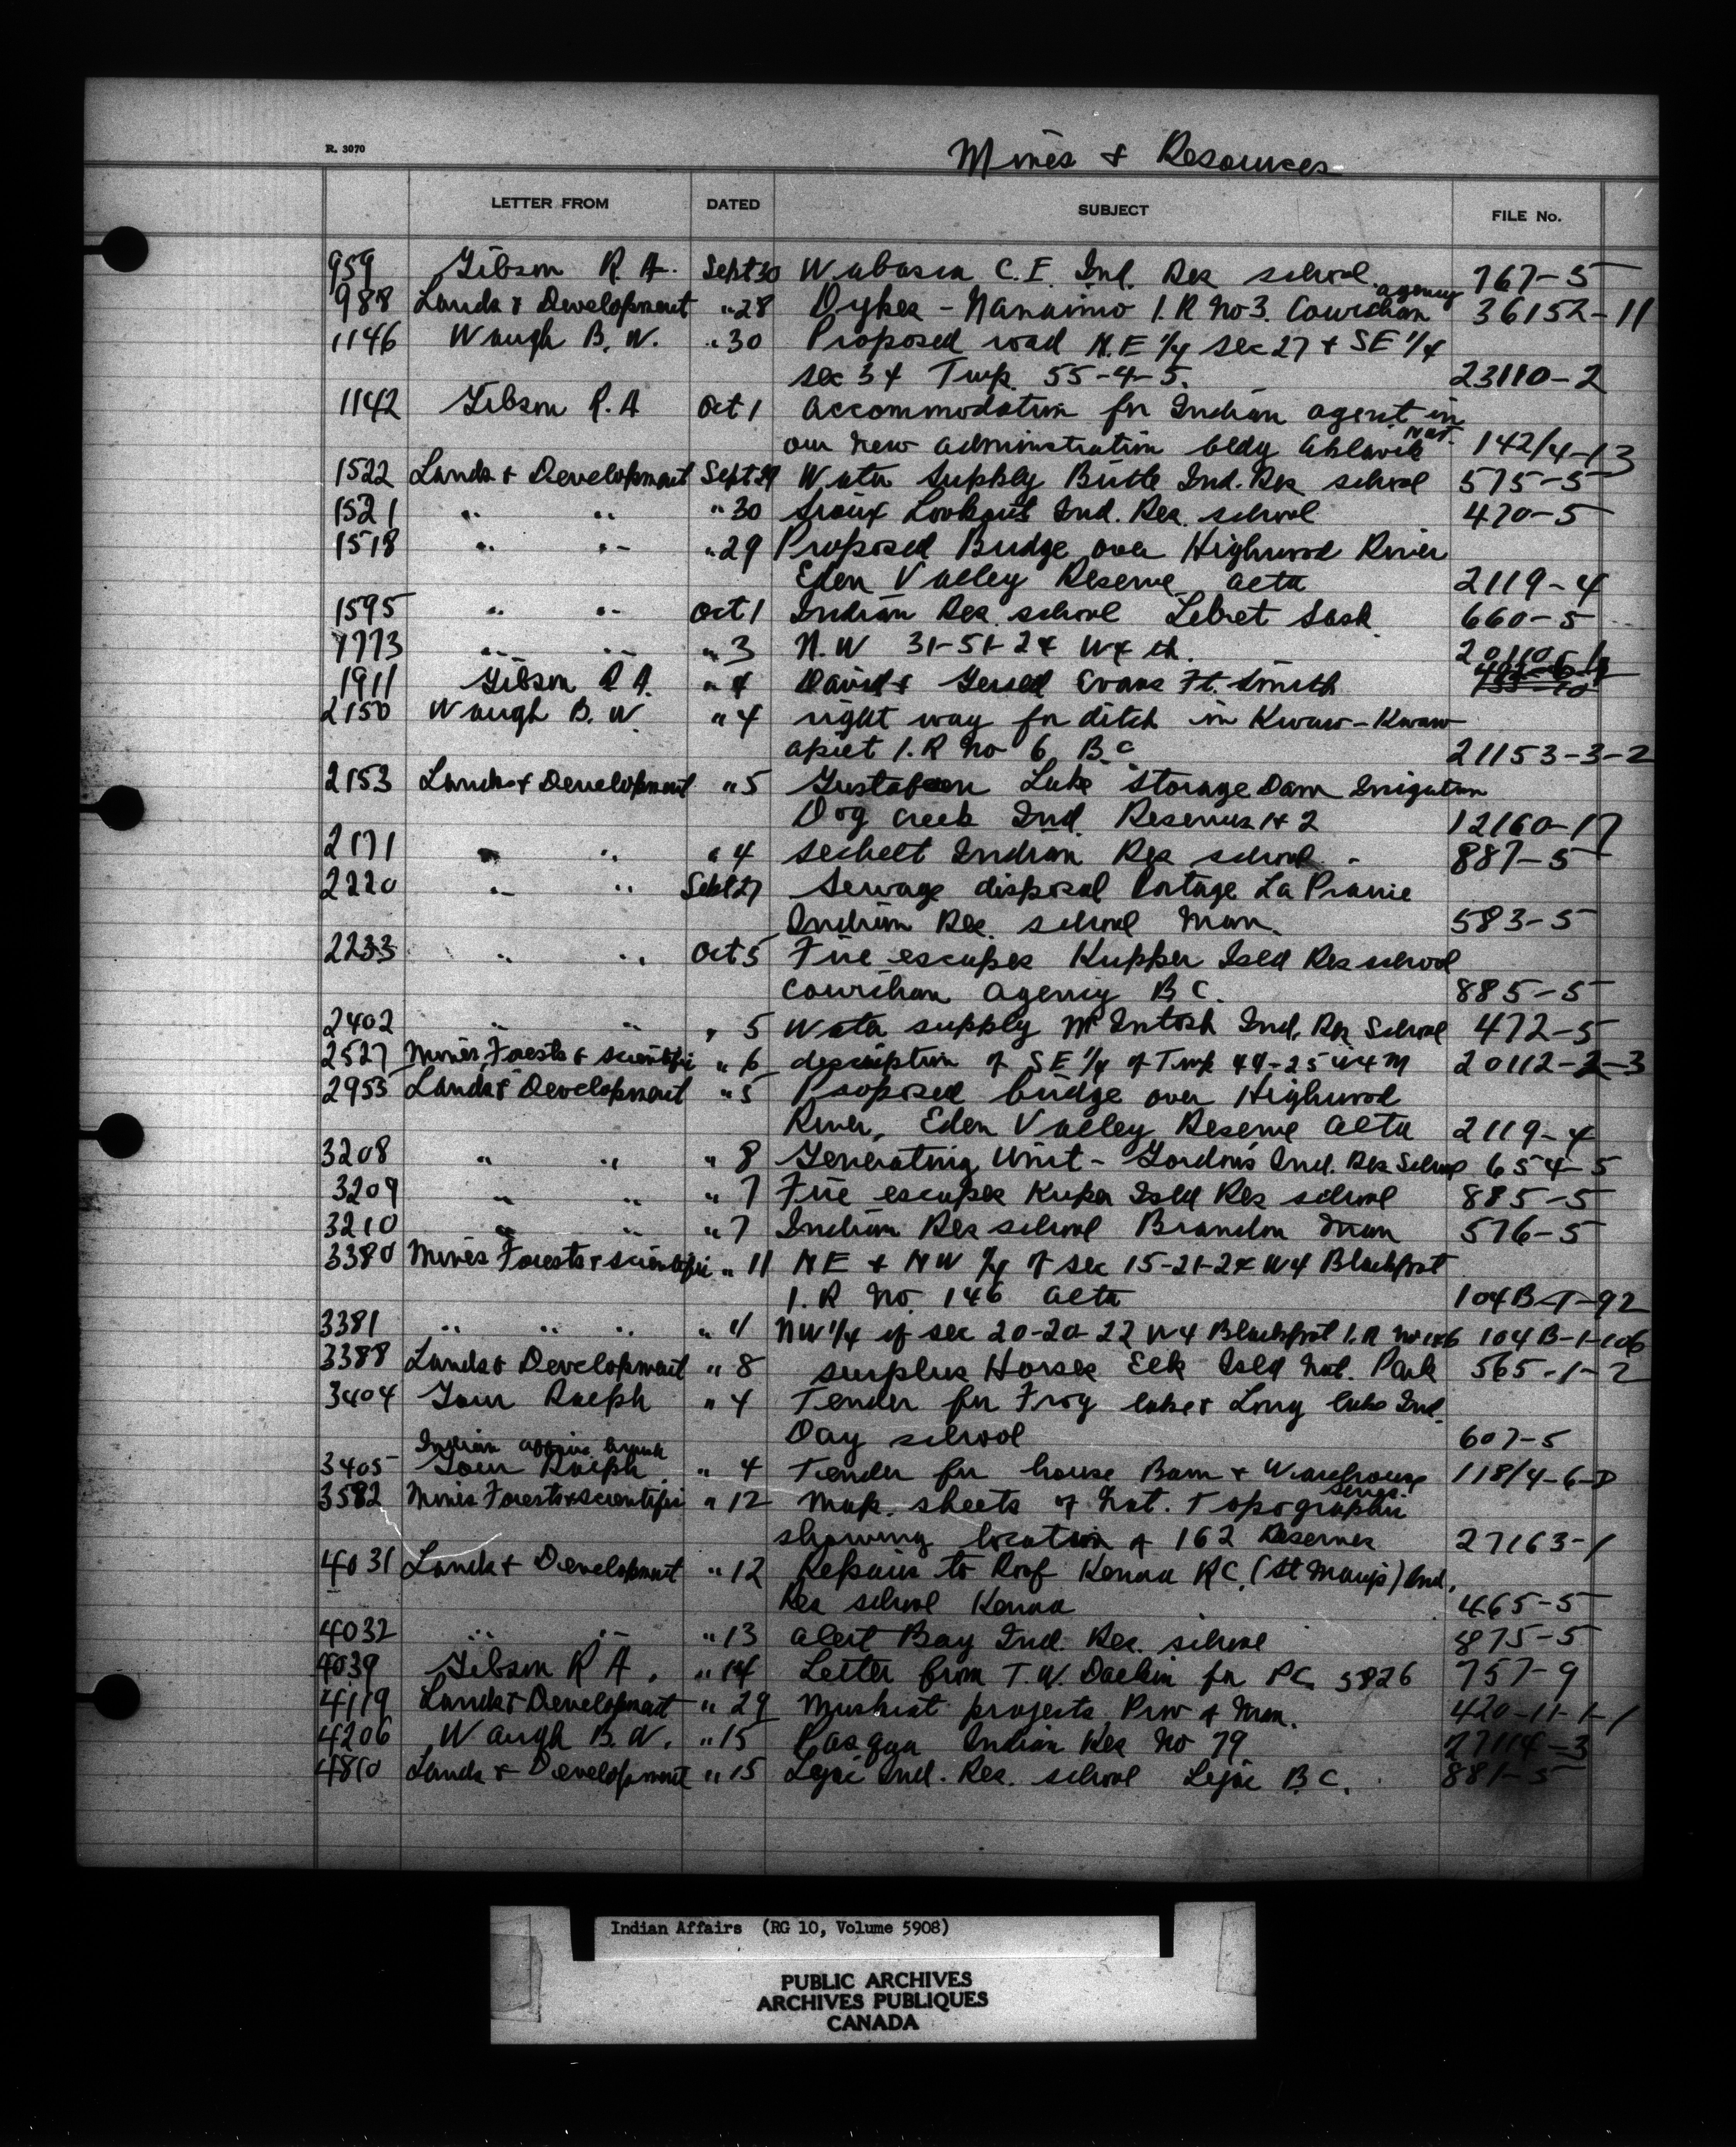 R. 3070
Mines & Resources
LETTER FROM DATED SUBJECT FILE No.
959 Gibson R. A. Sept 30 Wabasca C. E. Ind. Res school 767-5
agency
988 Lands & Development " 28 Dykes - Nanaimo I. R No 3. Cowichan 36152-11
1146 Waugh B. W. " 30 Proposed road N. E 1/4 sec 27 & SE 1/4
sec 34 Twp. 55-4-5. 23110-2
1142 Gibson R. A Oct 1 accommodation for Indian agent in
our new administration bldg Aklavik NWT. 142/4-13
1522 Lands & Development Sept 29 Water Supply Birtle Ind. Res school 575-5
1521 " " " 30 Sioux Lookout Ind. Res. school 470-5
1518 " " " 29 Proposed Bridge over Highwood River
Eden Valley Reserve Alta 2119-4
1595 " " Oct 1 Indian Res. school Lebret Sask 660-5
1773 " " " 3 N. W 31-51-24 W4 th.
1911 Gibson R A. " 4 David & Evans Ft. Smith
2150 Waugh B. W. " 4 right way for ditch in Kwaw-Kwaw
apilt I. R No 6 B.C 21153-3-2
2153 Lands & Development " 5 Gustafsen Lake Storage Dam Irrigation
Dog Creek Ind. Reserves 1 & 2 12160-17
2171 " " " 4 Sechelt Indian Res school - 887-5
2220 " " Sept 27 Sewage disposal Portage La Prairie
Indian Res. school Man. 583-5
2233 " " Oct 5 Fire escapes Kupper Isld Res school
Cowichan Agency B C. 885-5
2402 " " " 5 Water supply McIntosh Ind. Res School 472-5
2527 Mines, Forests & scientific " 6 description of SE 1/4 of Twp 49-25 W4M 20112-2-3
2955 Lands & Development " 5 Proposed bridge over Highwood
River, Eden Valley Reserve Alta 2119-4
3208 " " " 8 Generating Unit - Gordon's Ind. Res School 654-5
3209 " " " 7 Fire escapes Kuper Isld Res school 885-5
3210 " " " 7 Indian Res school Brandon Man 576-5
3380 Mines Forests & scientific " 11 NE & NW 1/4 of sec 15-21-24 W4 Blackfoot
I. R No. 146 Alta 104B-1-92
3381 " " " " 11 NW 1/4 of sec 20-20-22 W4 Blackfoot I. R No 146 104 B-1-106
3388 Lands & Development " 8 surplus Horses Elk Isld Nat. Park 565-1-2
3404 Ralph " 4 Tender for Frog lake & Long lake Ind.
Day school 607-5
Indian affairs branch
3405 Ralph " 4 Tender for house Barn & Warehouse 118/4-6-8
3582 Mines Forests & scientific " 12 map. sheets of Nat. Topographic Series.
showing location of 162 Reserves 27163-1
4031 Lands & Development " 12 Repairs to Roof Kenora RC. (St Mary's) Ind.
Res school Kenora 465-5
4032 " " " 13 Alert Bay Ind. Res. school 875-5
4039 Gibson R A. " 14 Letter from T. W. for PC 5826 757-9
4119 Lands & Development " 29 Muskrat projects Prov of Man. 420-11-1-1
4206 Waugh B. W. " 15 Pasqua Indian Res No 79 27114-3
4810 Lands & Development " 15 Lejac Ind. Res. school Lejac B C. 881-5
Indian Affairs (RG 10, Volume 5908)
PUBLIC ARCHIVES
ARCHIVES PUBLIQUES
CANADA